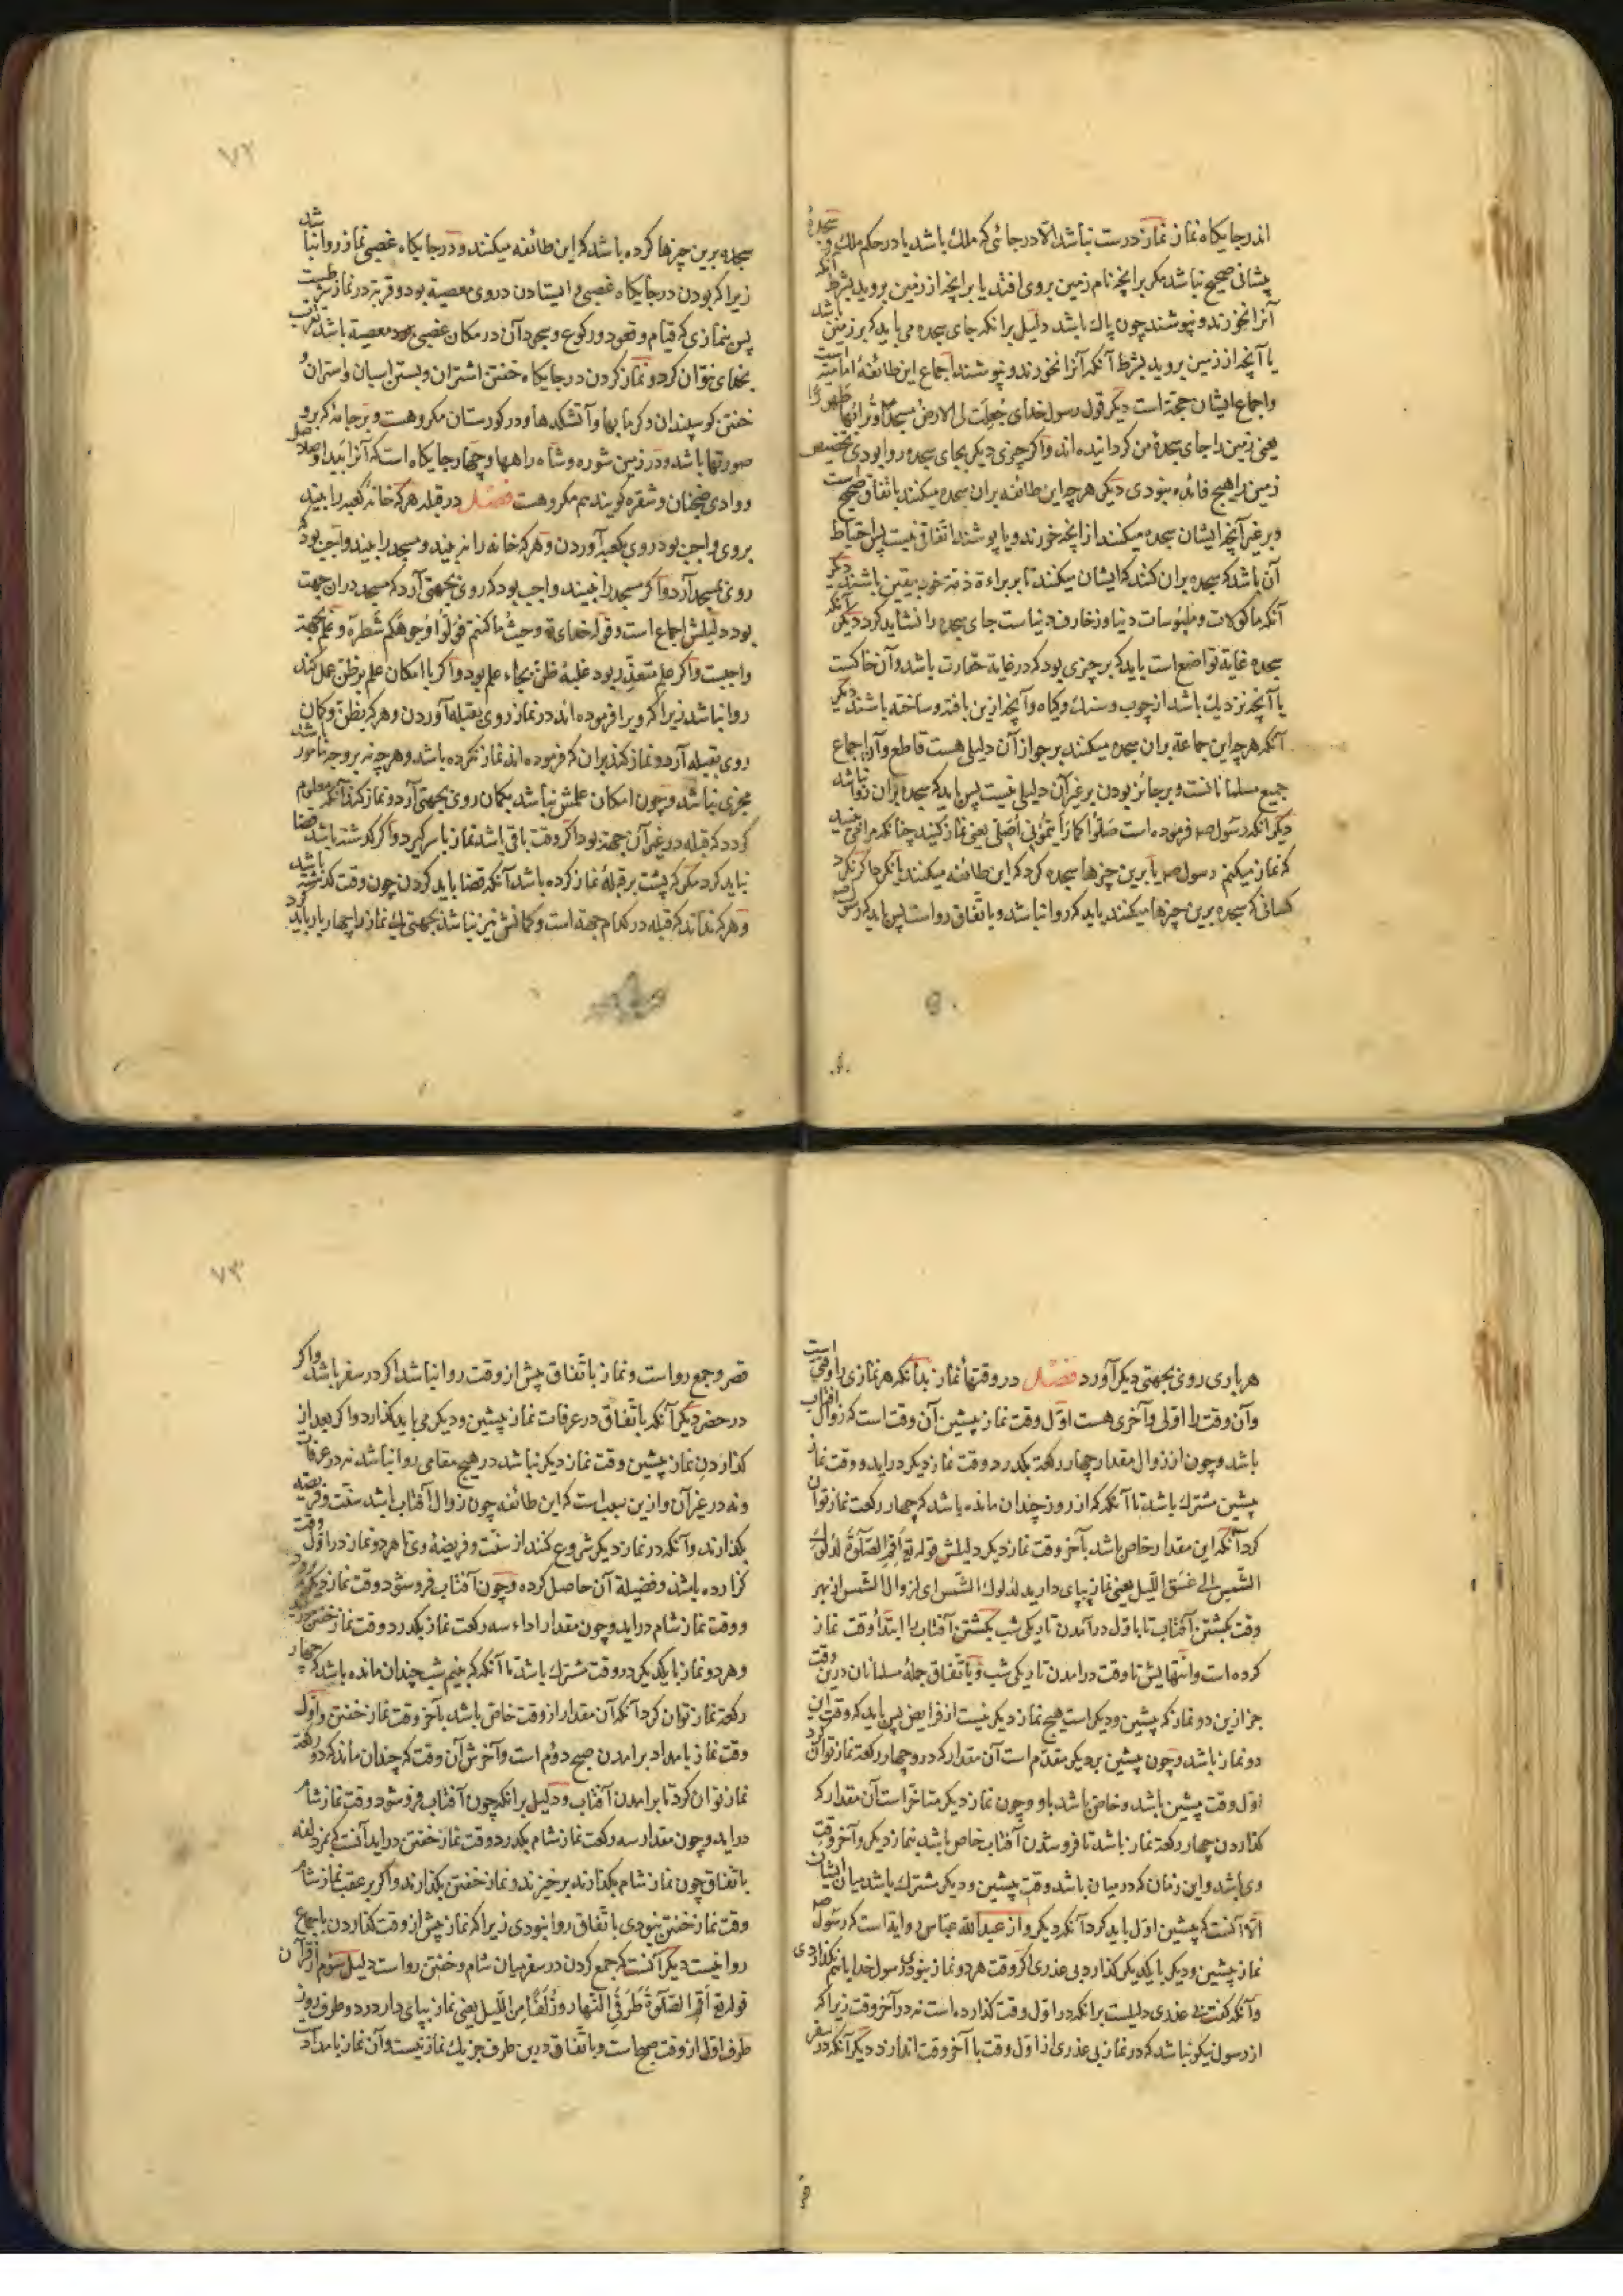 اندر جایکاه نماز نماز درست نباشد الا در جائی که ملک باشد یا در حکم ملک و سجدهٔ
پیشانی صحیح نباشد مکر بر انچه نام زمین بروی افتد یا بر انچه از زمین بروید بشرط آنکه
آنرا نخورند و نپوشند چون پاک باشد دلیل برانکه جای سجده می باید که بر زمین باشد
یا آنچه از زمین بروید بشرط آنکه آنرا نخورند و نپوشند اجماع این طائفهٔ امامیه است
واجماع ایشان حجة است دیکر قول رسول خدای جُعِلَت لی الارضُ مسجدًا وتُرابُها طَهورًا
یعنی زمین را جای سجدهٔ من کردانیده اند واکر چیزی دیکر بجای سجده روا بودی تخصیص
زمین را هیچ فائده نبودی دیکر هرچه این طائفه بران سجده میکنند باتفاق صحیح است
وبر غیر آنچه ایشان سجده میکنند از انچه خورند ویا پوشند اتفاقی نیست پس احتیاط
آن باشد که سجده بران کنند که ایشان میکنند تا بر براءة ذمة خود بیقین باشند دیکر
آنکه ماکولات وملبوسات دنیا وزخارف دنیاست جای سجده را نشاید کرد دیکر آنکه
سجده غایة تواضع است باید که بر چیزی بود که در غایة حقارت باشد وآن خاکست
یا آنچه نزدیک باشد از چوب وسنک وکیاه وآنچه ازین بافته وساخته باشند دیکر
آنکه هرچه این جماعة بران سجده میکنند بر جواز آن دلیلی هست قاطع وآن اجماع
جمیع مسلمانانست وبر جائز بودن بر غیر آن دلیلی نیست پس باید که سجده بران روا نباشد
دیکر آنکه رسول صم فرموده است صَلُّوا کَما رَاَیتُمُونی اُصَلّی یعنی نماز کنید چنانکه مرا می بینید
که نماز میکنم رسول صم یا برین چیزها سجده کرد که این طائفه میکنند یا نکرد اکر نکرد
کسانی که سجده برین چیزها میکنند باید که روا نباشد وباتفاق رواست پس باید که رسول صم
۷۲
سجده برین چیزها کرده باشد که این طائفه میکنند ودر جایکاه غصبی نماز روا نباشد
زیرا که بودن در جایکاه غصبی وایستادن دروی معصیة بود وقربة در نماز شرطست
پس نمازی که قیام وقعود ورکوع وسجود آن در مکان غصبی بود معصیة باشد تقرب
بخدای نتوان کرد ونماز کردن در جایکاه خفتن اشتران وبستن اسپان واستران و
خفتن کوسپندان وکرمابها وآتشکدها ودر کورستان مکروهست وبر جامهٔ که برو
صورتها باشد ودر زمین شوره وشاه راهها وچهار جایکاه است که آنرا بیدا وصلاصل
ووادی ضجنان وشقره کویند هم مکروهست فصل در قبله هرکه خانهٔ کعبه را بیند
بروی واجب بود روی بکعبه آوردن وهرکه خانه را نبیند ومسجد را بیند واجب بود که
روی بمسجد آرد واکر مسجد را نبیند واجب بود که روی بجهتی آرد که مسجد دران جهت
بود دلیلش اجماع است وقوله خدای تع وحیثُ ما کنتم فَوَلُّوا وُجوهَکُم شَطرَه وعلم بجهة
واجبست واکر علم متعذر بود غلبهٔ ظن بجاء علم بود واکر با امکان علم بر ظن عمل کند
روا نباشد زیرا که ویرا فرموده اند در نماز روی بقبله آوردن وهرکه بظن وکمان
روی بقبله آرد ونماز کند بران که فرموده اند نماز نکرده باشد وهرچه نه بر وجه مامور باشد
مجزی نباشد وچون امکان علمش نباشد بکمان روی بجهتی آرد ونماز کند آنکه معلوم
کردد که قبله در غیر آن جهة بود اکر وقت باقی باشد نماز با سر کیرد واکر کذشته باشد قضا
نباید کرد مکر که پشت بر قبله نماز کرده باشد آنکه قضا باید کردن چون وقت کذشته باشد
وهرکه نداند که قبله در کدام جهة است وکمانش نیز نباشد بجهتی یک نماز را چهار بار باید کرد
هر باری روی بجهتی دیکر آورد فصل در وقتها نماز بدانکه هر نمازی را وقتی است
وآن وقت را اولی وآخری هست اول وقت نماز پیشین آن وقت است که زوال آفتاب
باشد وچون از زوال مقدار چهار رکعة بکذرد وقت نماز دیکر دراید ووقت نماز
پیشین مشترک باشد تا آنکه که از روز چندان مانده باشد که چهار رکعت نماز توان
کرد آنکه این مقدار خاص باشد بآخر وقت نماز دیکر دلیلش قوله تع اَقِمِ الصَّلوةَ لِدُلُوکِ
الشَّمسِ الی غَسَقِ اللَّیلِ یعنی نماز بپای دارید لدلوک الشمس ای لزوال الشمس از بهر
وقت بکشتن آفتاب تا باول درآمدن تاریکی شب بکشتن آفتاب را ابتدا وقت نماز
کرده است وانتهایش تا وقت درامدن تاریکی شب وباتفاق جملهٔ مسلمانان درین وقت
جز ازین دو نماز که پیشین ودیکر است هیچ نماز دیکر نیست از فرایض پس باید که وقت این
دو نماز باشد وچون پیشین بر دیکر مقدم است آن مقدار که درو چهار رکعة نماز توان کرد
اول وقت پیشین باشد وخاص باشد باو وچون نماز دیکر متاخر است آن مقدار که
کذاردن چهار رکعة نماز باشد تا فرو شدن آفتاب خاص باشد بنماز دیکر وآخر وقت
وی باشد واین زمان که در میان باشد وقت پیشین ودیکر مشترک باشد میان ایشان
الا آنست که پیشین اول باید کرد آنکه دیکر واز عبدالله عباس روایة است که رسول صم
نماز پیشین ودیکر با یکدیکر کذارد بی عذری اکر وقت هر دو نماز نبودی رسول خدا باهم نکذاردی
وآنکه کفت بی عذری دلیلست برانکه در اول وقت کذارده است نه در آخر وقت زیرا که
از رسول نیکو نباشد که در نماز بی عذری از اول وقت با آخر وقت اندازد دیکر آنکه در سفر
۷۳
قصر وجمع رواست ونماز باتفاق پیش از وقت روا نباشد اکر در سفر باشد واکر
در حضر دیکر آنکه باتفاق در عرفات نماز پیشین ودیکر می باید کذارد واکر بعد از
کذاردن نماز پیشین وقت نماز دیکر نباشد در هیچ مقامی روا نباشد نه در عرفات
ونه در غیر آن وازین سبب است که این طائفه چون زوال آفتاب باشد سنت وفریضه
بکذارند وآنکه در نماز دیکر شروع کنند از سنت وفریضهٔ وی تا هر دو نماز در اول وقت
کزارده باشند وفضیلة آن حاصل کرده وچون آفتاب فرو شود وقت نماز دیکر برود
ووقت نماز شام دراید وچون مقدار اداء سه رکعت نماز بکذرد وقت نماز خفتن دراید
وهر دو نماز با یکدیکر در وقت مشترک باشد تا آنکه که بنیم شب چندان مانده باشد که چهار
رکعة نماز توان کرد آنکه آن مقدار از وقت خاص باشد بآخر وقت نماز خفتن واول
وقت نماز بامداد برامدن صبح دوم است وآخرش آن وقت که چندان ماند که دو رکعة
نماز توان کرد تا برامدن آفتاب ودلیل برانکه چون آفتاب فرو شود وقت نماز شام
دراید وچون مقدار سه رکعت نماز شام بکذرد وقت نماز خفتن دراید آنست که بمزدلفه
باتفاق چون نماز شام بکذارند برخیزند ونماز خفتن بکذارند واکر بر عقب نماز شام
وقت نماز خفتن نبودی باتفاق روا نبودی زیرا که نماز پیش از وقت کذاردن باجماع
روا نیست دیکر آنست که جمع کردن در سفر میان شام وخفتن رواست دلیل سوم از قرآن
قوله تع اَقِمِ الصَّلوةَ طَرَفَیِ النَّهارِ وزُلَفًا مِنَ اللَّیلِ یعنی نماز بپای دار در دو طرف روز
طرف اول از وقت صبح است وباتفاق درین طرف جز یک نماز نیست وآن نماز بامداد است